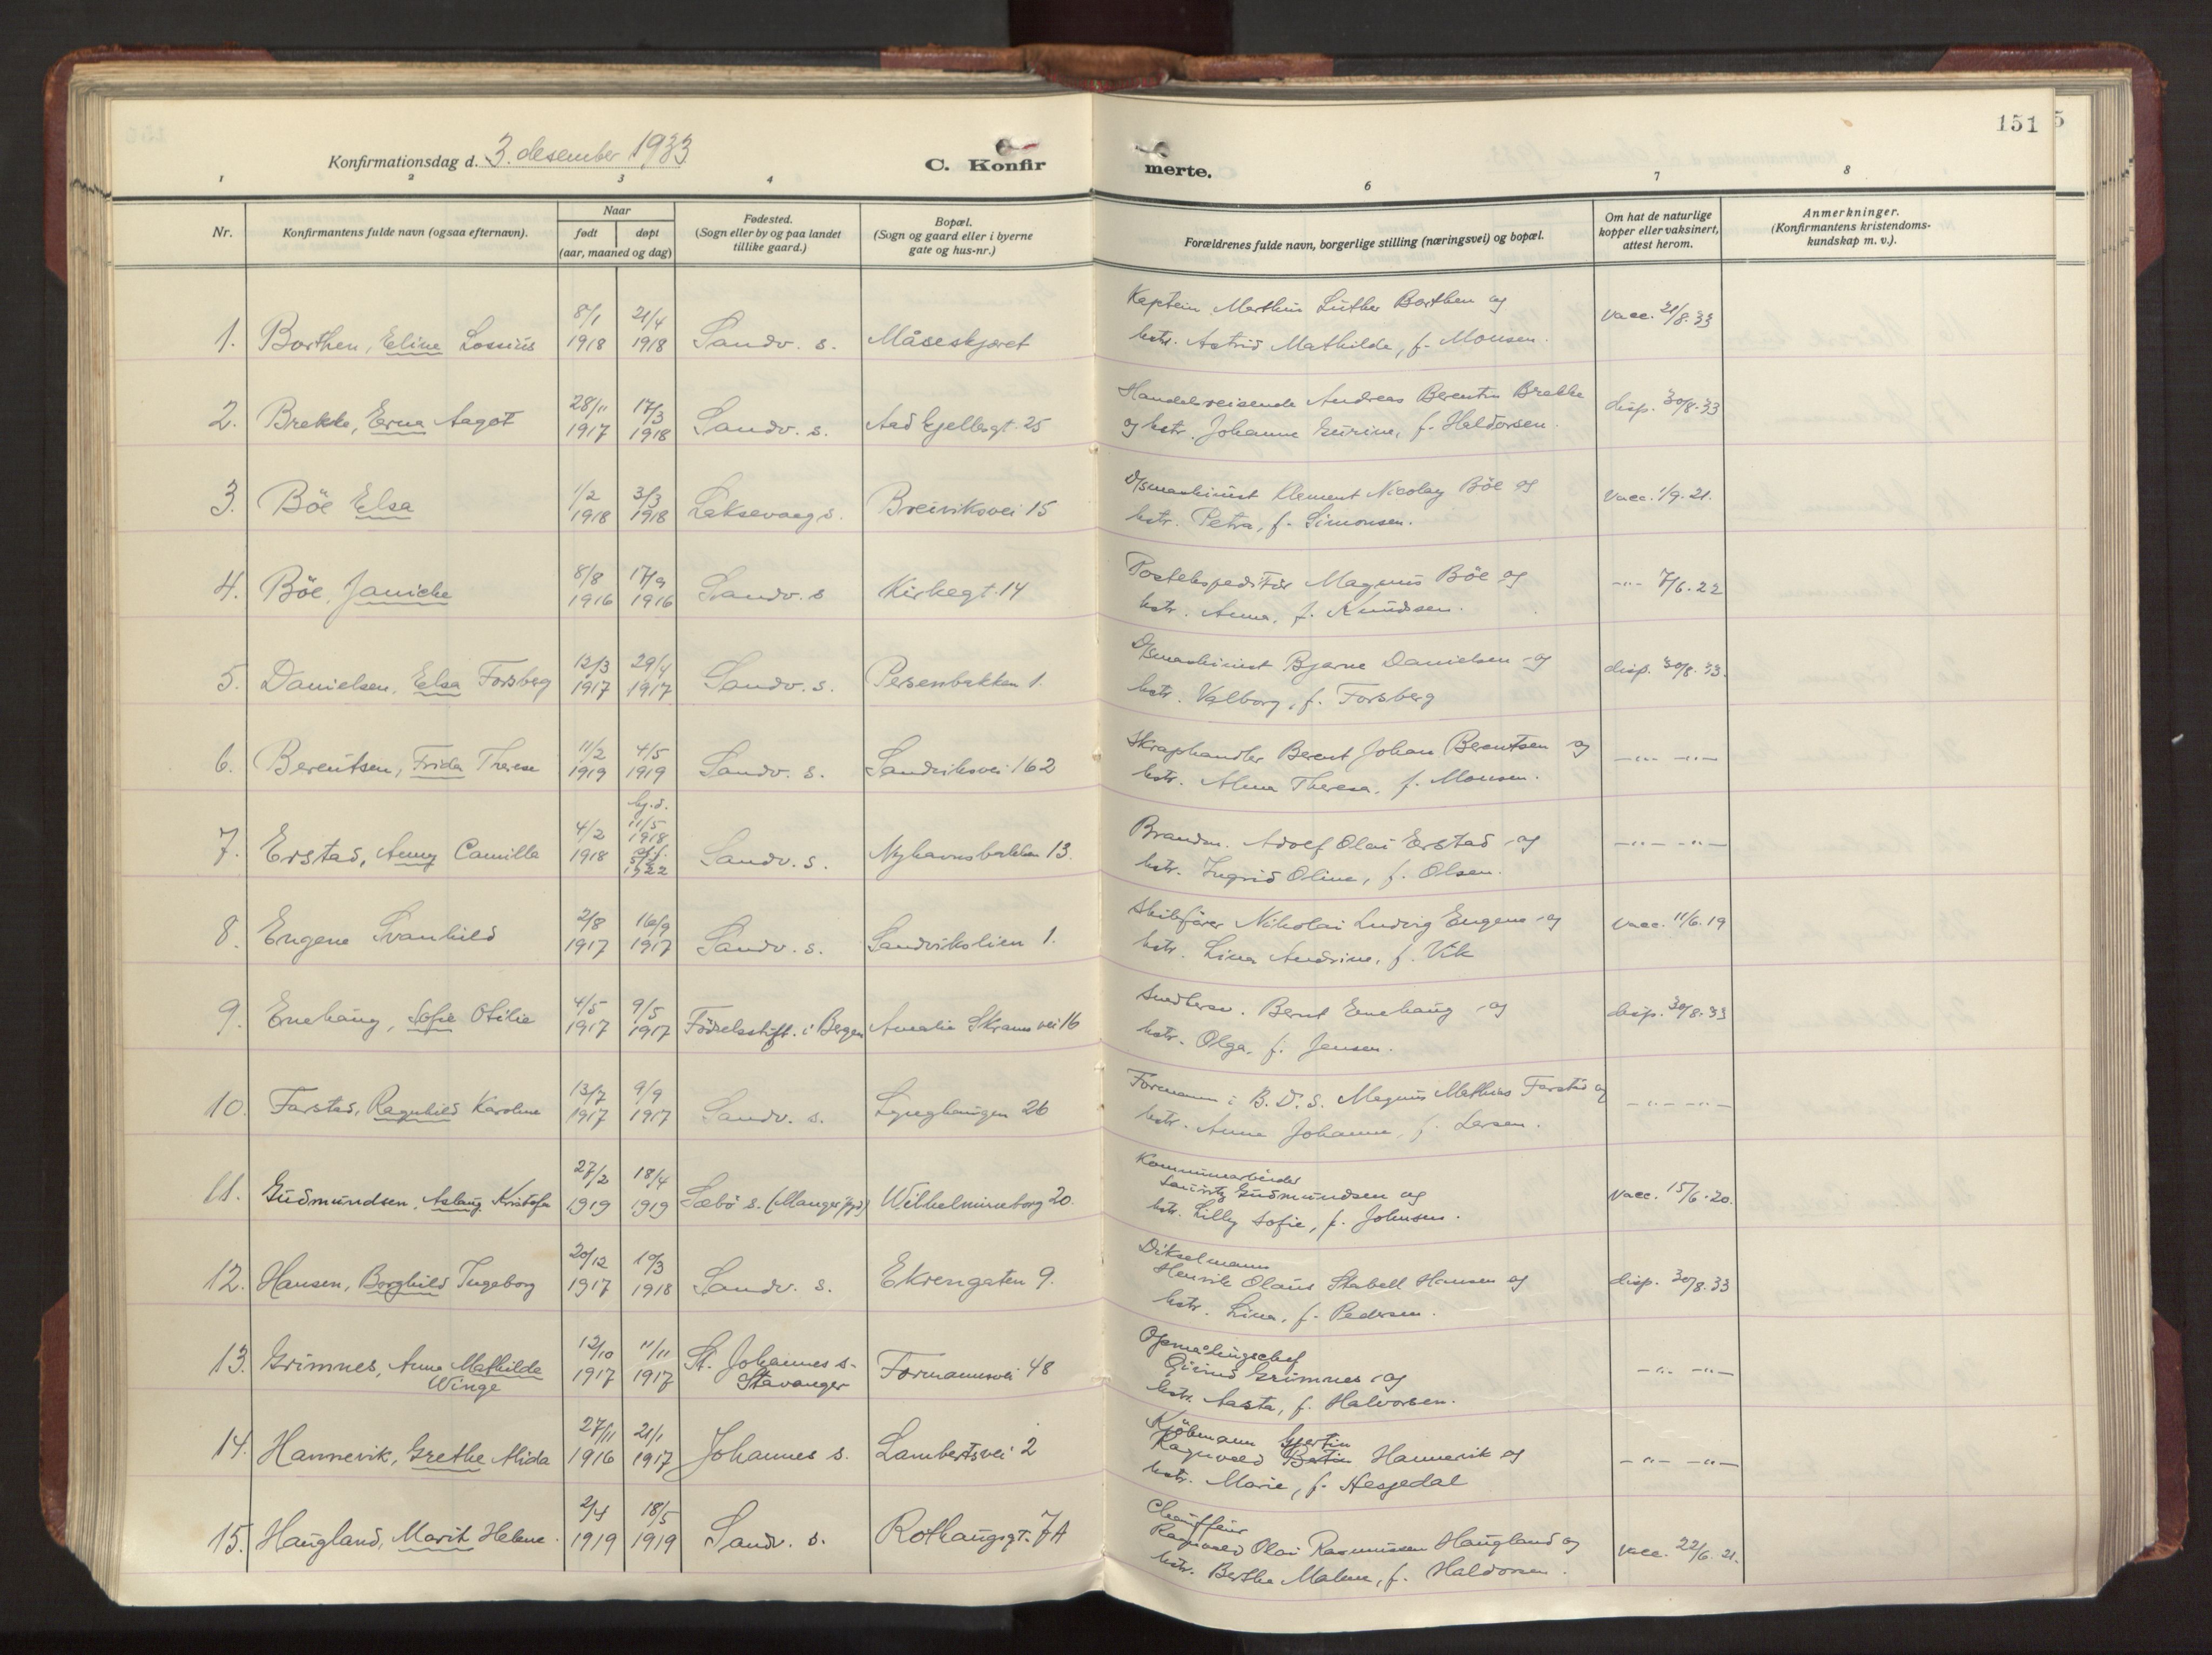 151
Konfirmationsdag d. 3. desember 1933
C. Konfir
merte.
1 2 3 4 6 7 8
Nr.
Konfirmantens fulde navn (ogsaa efternavn).
Naar
født døpt
(aar, maaned og dag)
Fødested.
(Sogn eller by og paa landet
tillike gaard.)
Bopæl.
(Sogn og gaard eller i byerne
gate og hus-nr.)
Forældrenes fulde navn, borgerlige stilling (næringsvei) og bopæl.
Om hat de naturlige
kopper eller vaksinert,
attest herom.
Anmerkninger.
(Konfirmantens kristendoms-
kundskap m. v.).
8/1 21/4
1. Borthen, Eline Lossius 1918 1918 Sandv. s. Måseskjæret
Kaptein Marthin Luther Borthen og
hstr. Astrid Mathilde, f. Monsen.
vacc. 21/8.33
28/11 17/3
2. Brekke, Erna Aagot 1917 1918 Sandv. s. Aad Gjellesgt. 25
Handelsreisende Andreas Berentin Brekke
og hstr. Johanne Gurine, f. Haldorsen.
disp. 30/8.33
1/2 3/3
3. Böe Elsa 1918 1918 Laksevaag s. Breiviksvei 15
D/smaskinist Klement Nicolay Böe og
hstr. Petra, f. Simonsen.
Vacc. 1/9.21.
8/8 17/9
4. Böe, Janiche 1916 1916 Sandv. s Kirkegt. 14
Postekspeditör Magnus Böe og
hstr. Anna, f. Knudsen.
-"- 7/6.22
12/3 29/4
5. Danielsen, Elsa Forsberg 1917 1917 Sandv. s. Persenbakken 1.
D/smaskinist Bjarne Danielsen og
hstr. Valborg, f. Forsberg
disp. 30/8.33.
11/2 4/5
6. Berentsen, Frida Therese 1919 1919 Sandv. s. Sandviksvei 162
Skraphandler Berent Johan Berentsen og
hstr. Alma Theresa, f. Monsen.
-"- -"-
hj.d.
4/2 11/5
1918
7. Erstad, Anny Camilla 1918 Sandv. s. Nyhavnsbakken 13.
1922
Brandm. Adolf Olai Erstad og
hstr. Ingrid Oline, f. Olsen.
-"- -"-
2/8 16/9
8. Engene Svanhild 1917 1917 Sandv. s. Sandvikslien 1.
Skibsfører Nikolai Ludvig Engene og
hstr. Lina Andrine, f. Vik
Vacc. 11/6.19
4/5 9/5
9. Ernehaug, Sofie Otilie 1917 1917 Fødselsstift. i Bergen Amalie Skrams vei 16
Snedkersv. Bernt Ernehaug og
hstr. Olga, f. Jensen.
disp. 30/8.33
13/7 9/9
10. Farstad, Ragnhild Karoline 1917 1917 Sandv. s. Lynghaugen 26
Formann i B.D.S. Magnus Mathias Farstad og
hstr. Anna Johanne, f. Larsen.
-"- -"-
27/2 18/4
11. Gudmundsen, Aslaug Kristofa 1919 1919 Sæbö s. (Manger pgd) Wilhelmineborg 20.
Kommunearbeider
Lauritz Gudmundsen og
hstr. Lilly Sofie, f. Johnsen.
Vacc. 15/6.20.
20/12 10/3
12. Hansen, Borghild Ingeborg 1917 1918 Sandv. s. Ekrengaten 9.
Dikselmann
Henrik Olaus Stabell Hansen og
hstr. Lina, f. Pedersen.
disp. 30/8.33
12/10 11/11
13. Grimnes, Anna Mathilde 1917 1917 St. Johannes s. Formannsvei 48
Winge Stavanger
Opmålingschef
Grimnes og
hstr. Aasta, f. Halvorsen.
-"- -"-
27/11 21/1
14. Hannevik, Grethe Alida 1916 1917 Johannes s. Lambertsvei 2
Kjöbmann Gjertin
Ragnvald Bertin Hannevik og
hstr. Marie, f. Hesjedal
-"- -"-
2/4 18/5
15. Haugland, Marit Helene. 1919 1919 Sandv. s. Rothaugsgt. 7A
Chauffeur
Ragnvald Olai Rasmussen Haugland og
hstr. Berthe Malene, f. Haldorsen.
vacc. 22/6.21.